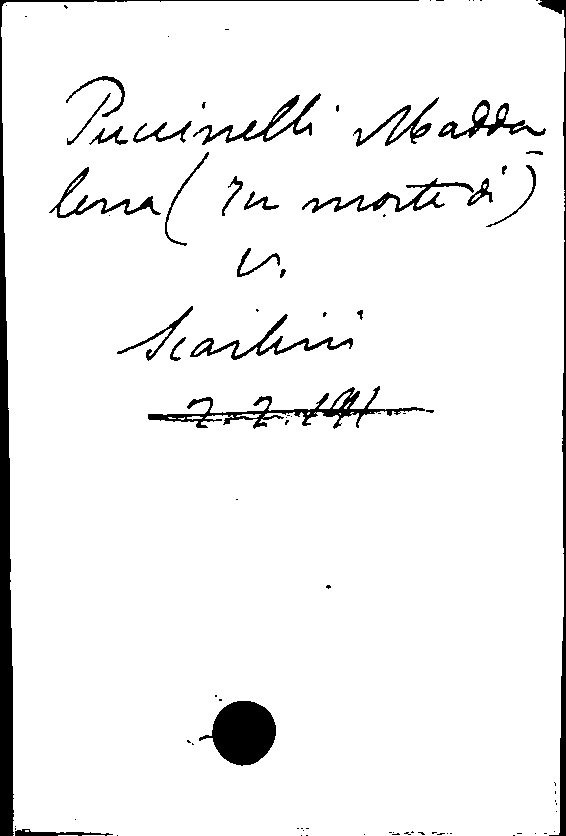 Puccinelli Madda
lena (In morte di)
v.
Scarlini